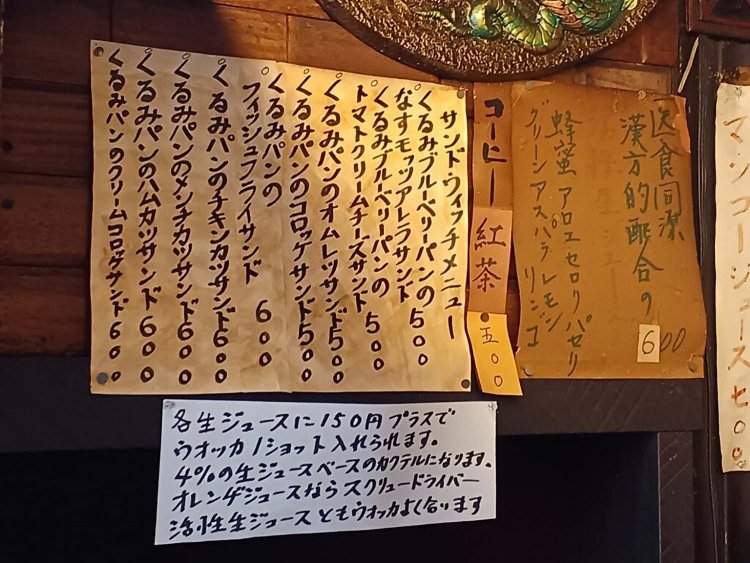 サンドウィッチメニュー
○くるみブルーベリーパンの
なすモッツアレラサンド 500
○くるみブルーベリーパンの
トマトクリームチーズサンド 500
○くるみパンのオムレツサンド500
○くるみパンのコロッケサンド500
○くるみパンの
フィッシュフライサンド 600
○くるみパンのチキンカツサンド600
○くるみパンのメンチカツサンド600
○くるみパンのハムカツサンド600
○くるみパンのクリームコロッケサンド600
コーヒー
紅茶
五〇〇
医食同源
漢方的配合の
600
蜂蜜アロエセロリパセリ
グリーンアスパラレモン
リンゴ
マンゴージュース七〇〇
各生ジュースに150円プラスで
ウオッカ1ショット入れられます。
4%の生ジュースベースのカクテルになります。
オレンヂジュースならスクリュードライバー
活性生ジュースともウオッカよく合います